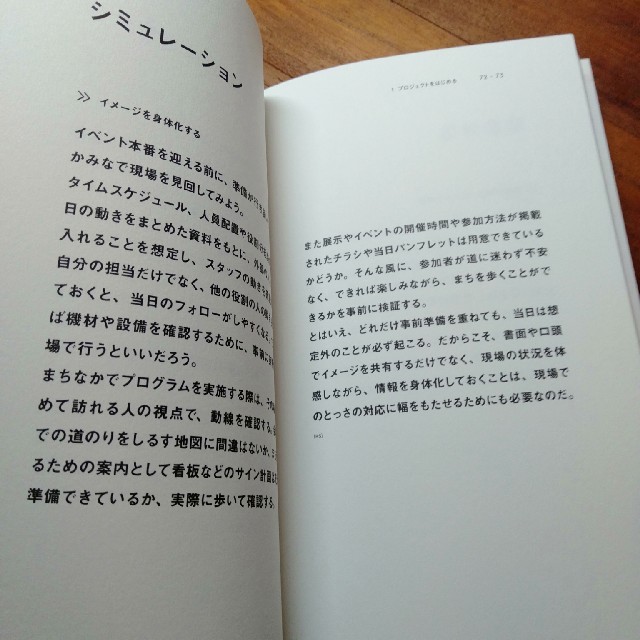 シミュレーション
イメージを身体化する
イベント本番を迎える前に、準備が
かみなで現場を見回してみよう。
タイムスケジュール、人員配置や役割
日の動きをまとめた資料をもとに、外部
入れることを想定し、スタッフの動き
自分の担当だけでなく、他の役割の人の
ておくと、当日のフォローがしやすくな
ば機材や設備を確認するために、事前に
場で行うといいだろう。
まちなかでプログラムを実施する際は、
めて訪れる人の視点で、動線を確認する。
での道のりをしるす地図に間違はないか、
るための案内として看板などのサイン計画は
準備できているか、実際に歩いて確認する。
1 プロジェクトをはじめる 72 - 73
また展示やイベントの開催時間や参加方法が掲載
されたチラシや当日パンフレットは用意できている
かどうか。そんな風に、参加者が道に迷わず不安
なく、できれば楽しみながら、まちを歩くことがで
きるかを事前に検証する。
とはいえ、どれだけ事前準備を重ねても、当日は想
定外のことが必ず起こる。だからこそ、書面や口頭
でイメージを共有するだけでなく、現場の状況を体
感しながら、情報を身体化しておくことは、現場で
のとっさの対応に幅をもたせるためにも必要なのだ。